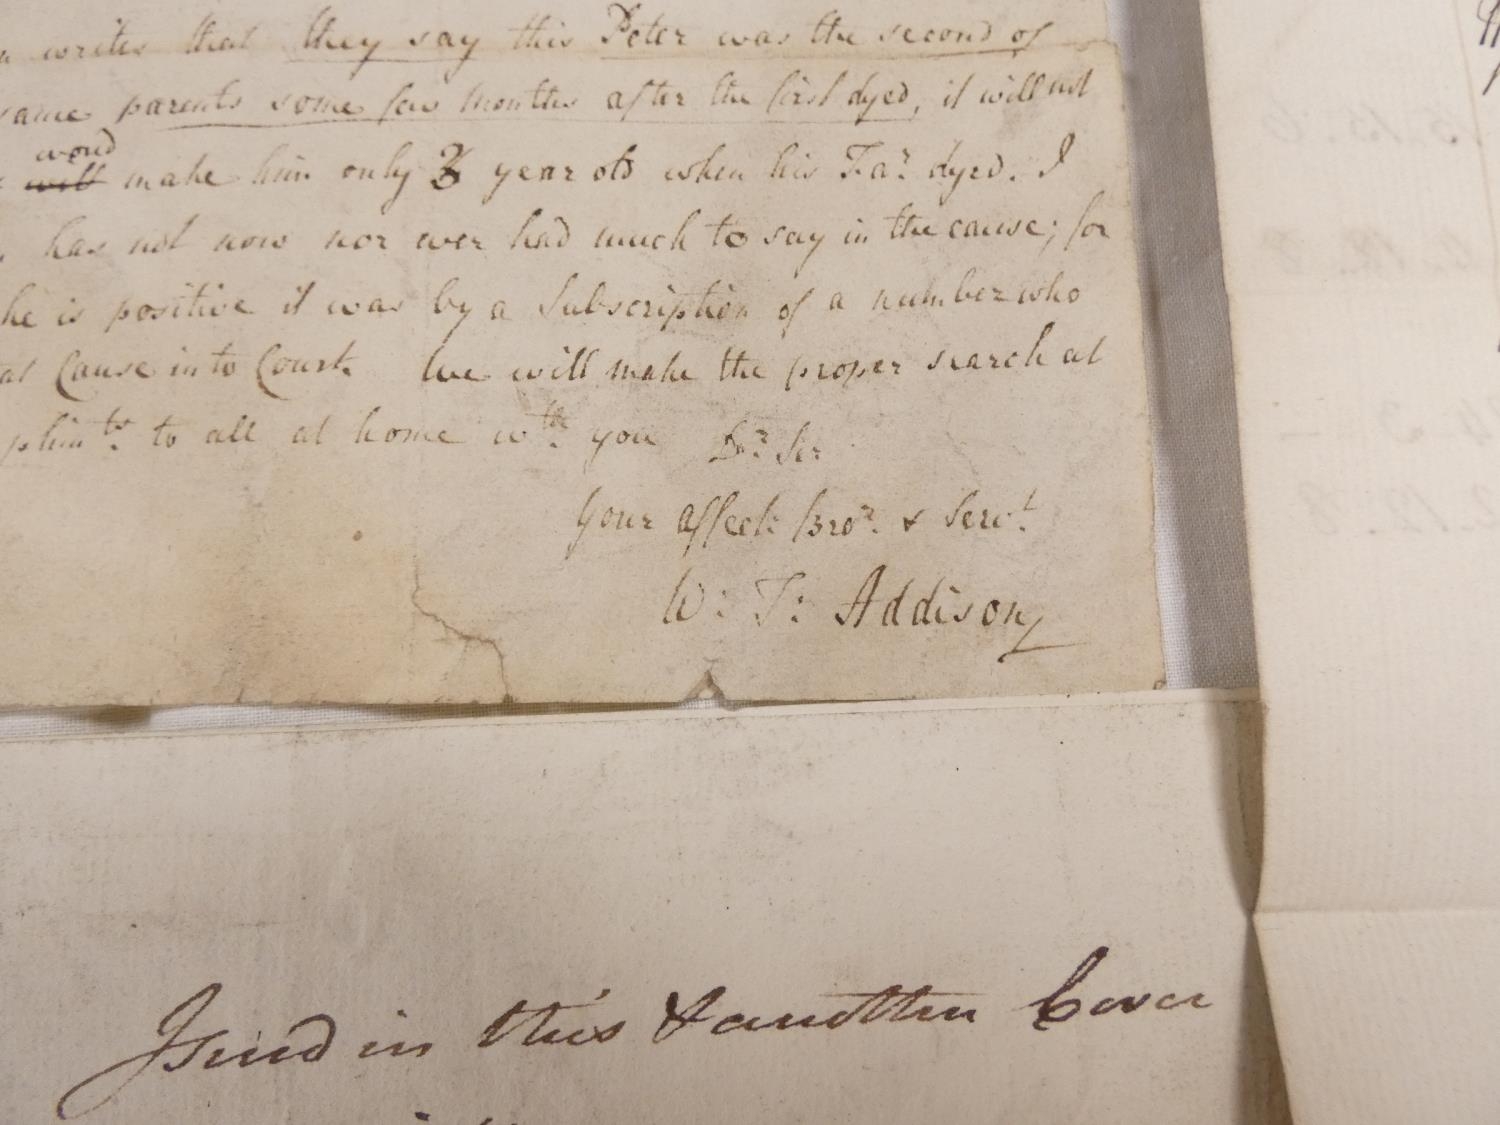 writes that they say this Peter was the second of
same parents some few months after the first dyed, it will not
woud
will make him only 3 year old when his Far dyed. I
has not now nor ever had much to say in the cause; for
he is positive it was by a Subscription of a number who
Cause into Court. We will make the proper search at
plimts. to all at home wth. you Dr. Sir
Your affect: Bror. & Servt.
W: T: Addison
I send in this & another Cover